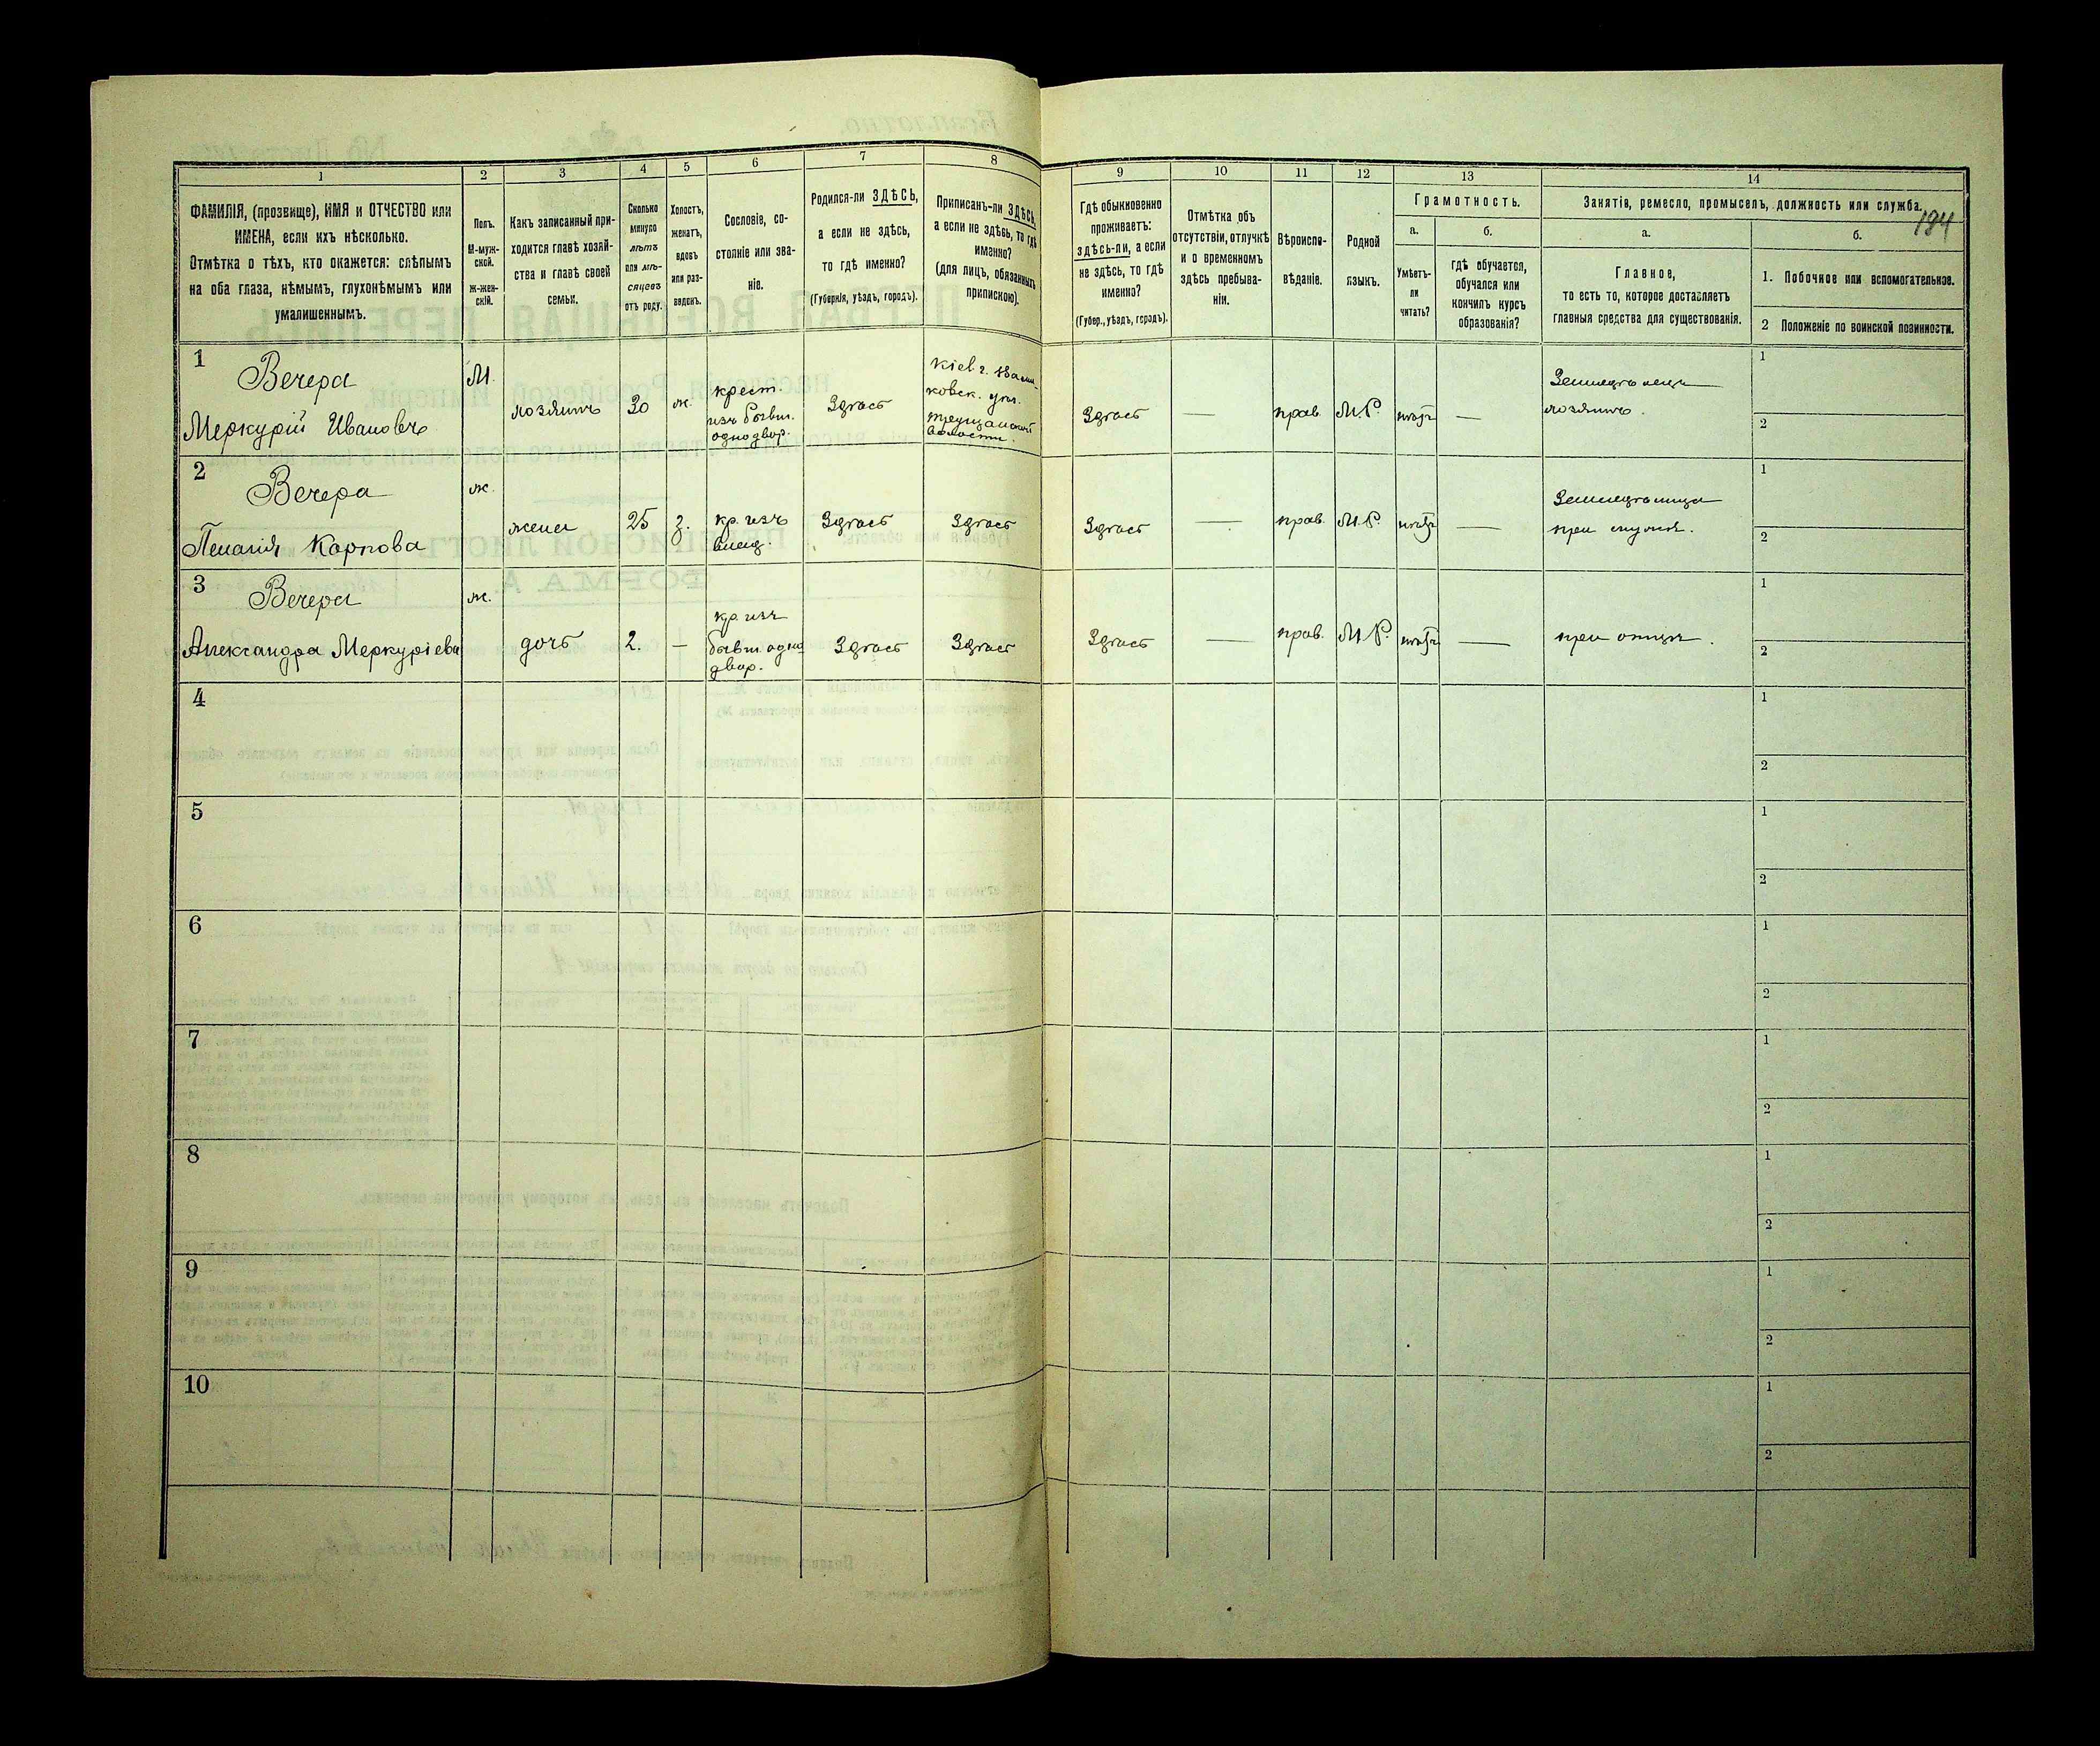 1
2
3
4
5
6
7
8
9
10
11
12
13
14
ФАМИЛІЯ, (прозвище), ИМЯ и ОТЧЕСТВО или
ИМЕНА, если ихъ нѣсколько.
Отмѣтка о тѣхъ, кто окажется: слѣпымъ
на оба глаза, нѣмымъ, глухонѣмымъ или
умалишеннымъ.
Полъ.
М-муж-
ской.
Ж-жен-
скій.
Какъ записанный при-
ходится главѣ хозяй-
ства и главѣ своей
семьи.
Сколько
минуло
лѣтъ
или мѣ-
сяцевъ
отъ роду.
Холостъ,
женатъ,
вдовъ
или раз-
веденъ.
Сословіе, со-
стояніе или зва-
ніе.
Родился-ли ЗДѢСЬ,
а если не здѣсь,
то гдѣ именно?
(Губернія, уѣздъ, городъ).
Приписанъ-ли ЗДѢСЬ,
а если не здѣсь, то гдѣ
именно?
(для лицъ, обязанныхъ
припискою).
Гдѣ обыкновенно
проживаетъ:
здѣсь-ли, а если
не здѣсь, то гдѣ
именно?
(Губер., уѣздъ, городъ).
Отмѣтка объ
отсутствіи, отлучкѣ
и о временномъ
здѣсь пребыва-
ніи.
Вѣроиспо-
вѣданіе.
Родной
языкъ.
Грамотность.
а.
Умѣетъ-
ли
читать?
б.
гдѣ обучается,
обучался или
кончилъ курсъ
образованія?
Занятіе, ремесло, промыселъ, должность или служба.
194
а.
Главное,
то есть то, которое доставляетъ
главныя средства для существованія.
б.
1. Побочное или вспомогательное.
2 Положеніе по воинской повинности.
1
Вечера
Меркурій Ивановъ
М.
хозяинъ
30
ж.
крест.
изъ бывш.
однодвор.
Здѣсь
Кіев г. Васил-
ковск. уѣз.
волости.
Здѣсь
—
прав.
М.Р.
нѣтъ
—
Земледѣлецъ
хозяинъ.
1
2
2
Вечера
Пелагія Карпова
ж.
жена
25
з.
кр. изъ
Здѣсь
Здѣсь
Здѣсь
—
прав.
М.Р.
нѣтъ
—
при мужѣ.
1
2
3
Вечера
Александра Меркуріева
ж.
дочь
2.
—
кр. изъ
бывш. одно
двор.
Здѣсь
Здѣсь
Здѣсь
—
прав.
М.Р.
нѣтъ
—
при отцѣ.
1
2
4
1
2
5
1
2
6
1
2
7
1
2
8
1
2
9
1
2
10
1
2